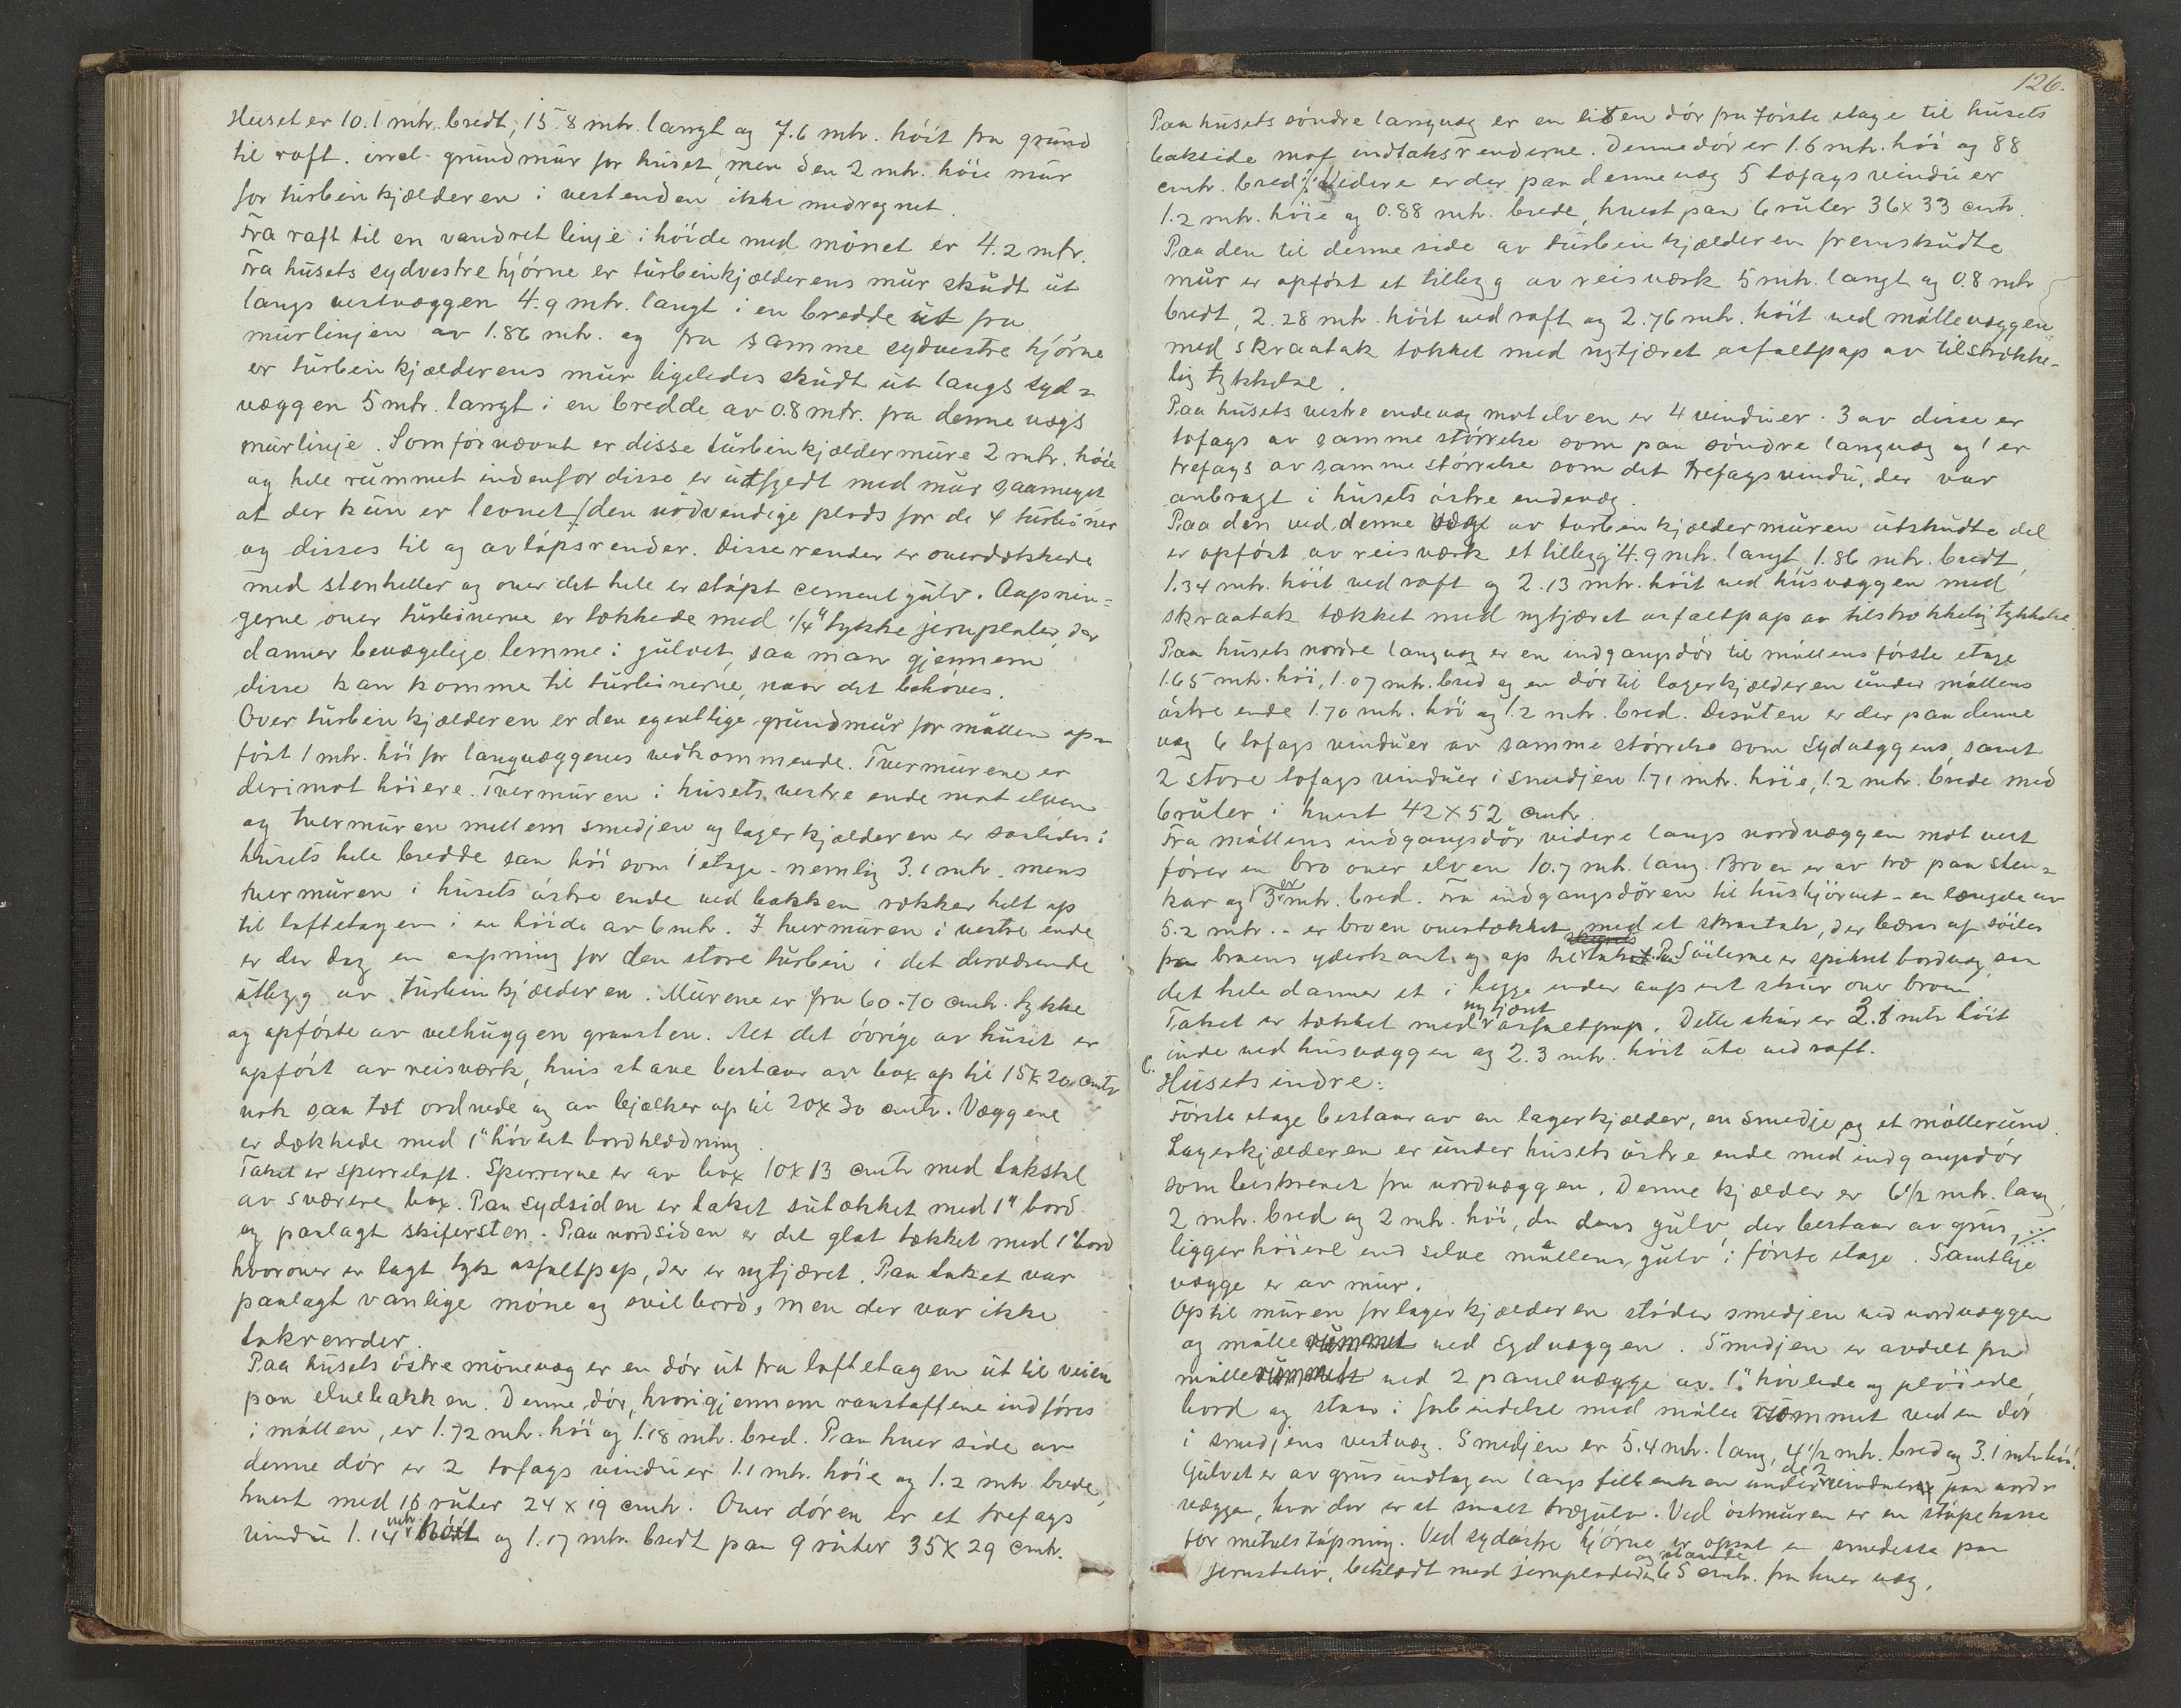 Huset er 10.1 mtr. bredt, 15.8 mtr. langt og 7.6 mtr. höit fra grund
til raft. incl. grundmur for huset, men den 2 mtr. höie mur
for turbinkjælderen i vestenden ikke medregnet.
Fra raft til en vandret linje i höide med mönet er 4.2 mtr.
Fra husets sydvestre hjörne er turbinkjælderens mur skudt ut
langs vestvæggen 4.9 mtr. langt i en bredde ut fra
murlinjen av 1.86 mtr. og fra samme sydvestre hjörne
er turbinkjælderens mur ligeledes skudt ut langs syd=
væggen 5 mtr. langt i en bredde av 0.8 mtr. fra denne vægs
murlinje. Som för nævnt er disse turbinkjældermure 2 mtr. höie
og hele rummet indenfor disse er utfyldt med mur saameget
at der kun er levnet den nödvendige plads for de 4 turbiner
og disses til og avlöpsrender. Disse render er overdækkede
med stenheller og over det hele er stöpt cementgulv. Aapnin=
gerne over turbinerne er tækkede med 1/4" tykke jernplater, der
danner bevægelige lemme i gulvet, saa man gjennem
disse kan komme til turbinerne, naar det behöves.
Over turbinkjælderen er den egentlige grundmur for möllen op=
fört 1 mtr. höi for langvæggenes vedkommende. Tvermurene er
derimot höiere. Tvermuren i husets vestre ende mot elven
og tvermuren mellem smedjen og lagerkjælderen er saaledes i
husets hele bredde saa höi som 1 etage - nemlig 3.1 mtr. mens
tvermuren i husets östre ende ved bakken rækker helt op
til loftetagen i en höide av 6 mtr. I tvermuren i vestre ende
er der dog en aapning for den store turbin i det derværende
utbygg av turbinkjælderen. Murene er fra 60-70 cmtr. tykke
og opförte av velhuggen graasten. Alt det övrige av huset er
opfört av reisværk, hvis stave bestaar av box op til 15 x 20 cmtr
nok saa tæt ordnede og av bjælker op til 20 x 30 cmtr. Væggene
er dækkede med 1" hövlet bordklædning.
Taket er sperreloft. Sperrerne er av box 10 x 13 cmtr med takstol
av sværere box. Paa sydsiden er taket sutækket med 1" bord
og paalagt skifersten. Paa nordsiden er det glat tækket med 1" bord
hvorover er lagt tyk asfaltpap, der er nytjæret. Paa taket var
paalagt vanlige möne og vvilbord, men der var ikke
takrender.
Paa husets östre mönevæg er en dör ut fra loftetagen ut til veien
paa elvebakken. Denne dör, hvorigjennem raastoffene indföres
i möllen, er 1.72 mtr. höi og 1.18 mtr. bred. Paa hver side av
denne dör er 2 tofags vinduer 1.1 mtr. höie og 1.2 mtr brede,
hvert med 16 ruter 24 x 19 cmtr. Over dören er et trefags
vindu 1.14 mtr höit og 1.17 mtr. bredt paa 9 ruter 35 x 29 cmtr.
126.
Paa husets söndre langvæg er en liten dör fra förste etage til husets
bakside mot indtaksrenderne. Denne dör er 1.6 mtr. höi og 88
cmtr. bred. Videre er der paa denne væg 5 tofags vinduer
1.2 mtr. höie og 0.88 mtr. brede, hvert paa 6 ruter 36 x 33 cmtr.
Paa den til denne side av turbinkjælderen fremskudte
mur er opfört et tillegg av reisværk 5 mtr. langt og 0.8 mtr
bredt, 2.28 mtr. höit ved raft og 2.76 mtr. höit ved möllevæggen
med skraatak tækket med nytjæret asfaltpap av tilstrække-
lig tykkelse.
Paa husets vestre endevæg mot elven er 4 vinduer. 3 av disse er
tofags av samme störrelse som paa söndre langvæg og 1 er
trefags av samme störrelse som det trefagsvindu, der var
anbragt i husets östre endevæg.
Paa den ved denne væg av turbinkjældermuren utskudte del
er opfört av reisværk et tillegg 4.9 mtr. langt 1.86 mtr. bredt,
1.34 mtr. höit ved raft og 2.13 mtr. höit ved husvæggen med
skraatak tækket med nytjæret asfaltpap av tilstrækkelig tykkelse.
Paa husets nordre langvæg er en indgangsdör til möllens förste etage
1.65 mtr. höi, 1.07 mtr. bred og en dör til lagerkjælderen under möllens
östre ende 1.70 mtr. höi og 1.2 mtr. bred. Desuten er der paa denne
væg 6 tofags vinduer av samme störrelse som Sydvæggens, samt
2 store tofags vinduer i smedjen 1.71 mtr. höie, 1.2 mtr. brede med
6 ruter i hvert 42 x 52 cmtr.
Fra möllens indgangsdör videre langs nordvæggen mot vest
förer en bro over elven 10.7 mtr. lang. Broen er av træ paa sten=
kar og er 3 mtr. bred. Fra indgangsdören til hushjörnet - en længde av
5.2 mtr. - er broen overtækket med et skraatak, der bæres af söiler
fra broens yderkant og op til taket. Paa Söilerne er spikret bordvæg, saa
det hele danner et i begge ender aapent skur over broen.
Taket er tækket med nytjæret asfaltpap. Dette skur er 2.8 mtr höit
inde ved husvæggen og 2.3 mtr. höit ute ved raft.
C.
Husets indre:
Förste etage bestaar av en lagerkjælder, en smedje og et möllerum.
Lagerkjælderen er under husets östre ende med indgangsdör
som beskrevet fra nordvæggen. Denne kjælder er 6 1/2 mtr. lang,
2 mtr. bred og 2 mtr. höi, da dens gulv, der bestaar av grus,
ligger höiere end selve möllens gulv i förste etage. Samtlige
vægge er av mur.
Op til muren for lagerkjælderen stöder smedjen ved nordvæggen
og möllerummet ved Sydvæggen. Smedjen er avdelt fra
möllerummet ved 2 panelvægge av 1" hövlede og plöiede
bord og staar i forbindelse med möllerummet ved en dör
i smedjens vestvæg. Smedjen er 5.4 mtr. lang, 4 1/2 mtr. bred og 3.1 mtr. höi.
Gulvet er av grus undtagen langs filbenken under de 2 vinduer paa nordre
væggen, hvor der er et smalt trægulv. Ved östmuren er en stöpekasse
for metalstöpning. Ved sydöstre hjörne er opsat en smedesse paa
jernstativ, beklædt med jernplader og staaende 65 cmtr. fra hver væg.